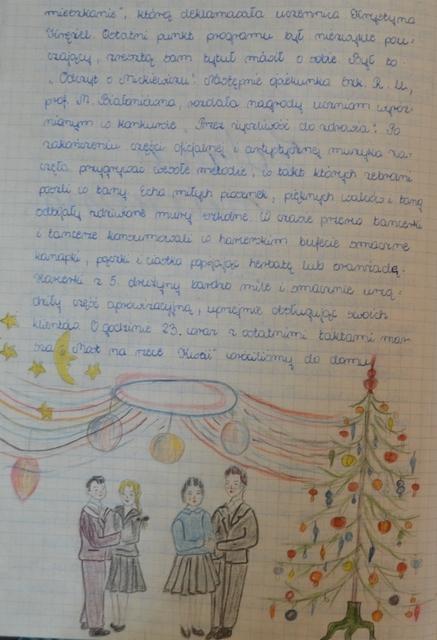 mieszkanie", którą deklamowała uczennica Krystyna
Ostatni punkt programu był niezwykle pou-
czający, zresztą sam tytuł mówił o sobie. Był to:
"Odczyt o Mickiewiczu". Następnie opiekunka Szk. K. U,
prof. M. rozdała nagrody uczniom wyróż-
nionym w konkursie "Przez życzliwość do zdrowia". Po
zakończeniu części oficjalnej i artystycznej muzyka za-
częła przygrywać wesołe melodie, w takt których zebrani
poszli w tany. Echa miłych piosenek, pięknych walców i tang
odbijały zdziwione mury szkolne. W czasie przerw tancerki
i tancerze konsumowali w harcerskim bufecie smaczne
kanapki, pączki i ciastka popijając herbatę lub oranżadę.
Harcerki z 5. drużyny bardzo miło i smacznie urzą-
dziły część aprowizacyjną, uprzejmie obsługując swoich
klientów. O godzinie 23. wraz z ostatnimi taktami mar-
sza "Most na rzece Kwai" wróciliśmy do domu.